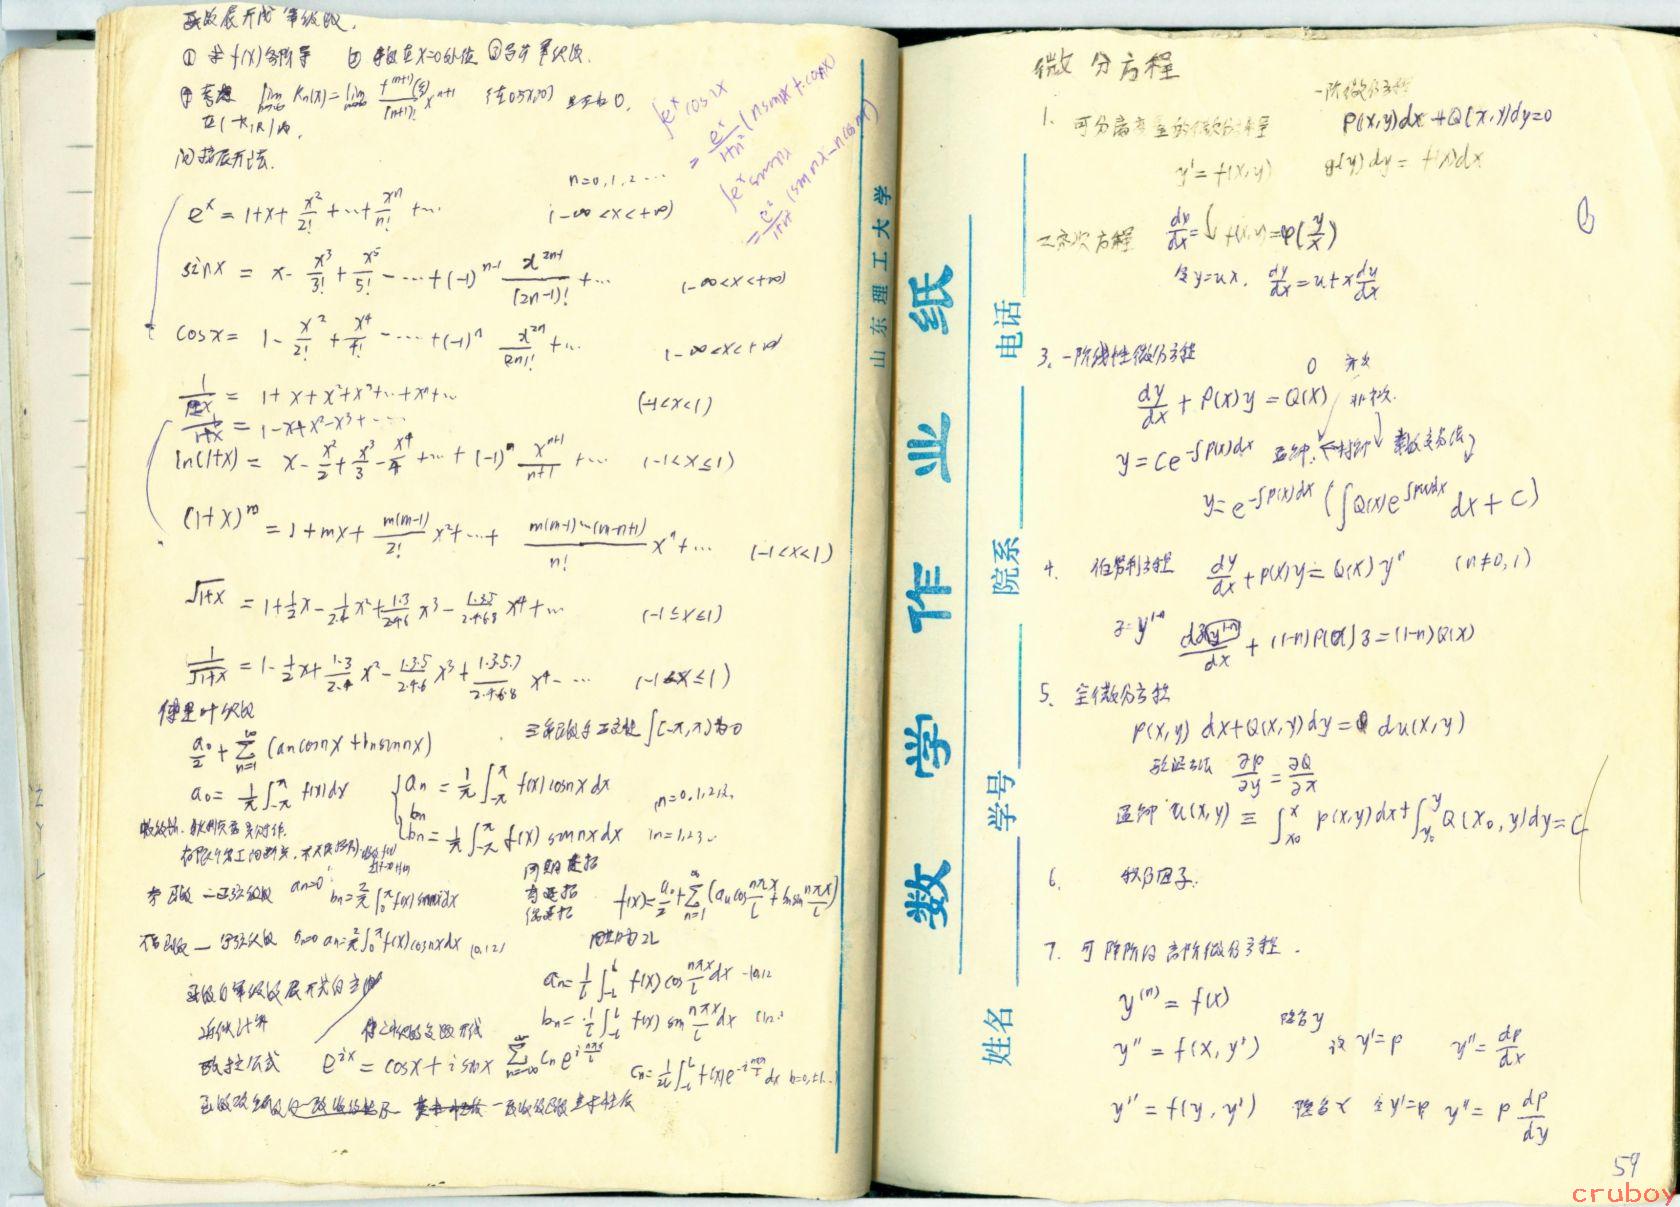 函数展开成幂级数.
① 求 f(x) 各阶导 ② 求在x=0处值 ③ 写出幂级数.
④ 考虑 lim n→∞ Rn(x) = lim n→∞ f^(n+1)(ξ)/(n+1)! x^(n+1) 是否为0.
在(-R,R)内.
间接展开法.
∫e^x cosnx
= e^x/(1+n²) (n sinnx + cosnx)
∫e^x sinnx
= e^x/(1+n²) (sinnx - n cosnx)
n=0,1,2...
e^x = 1+x+ x²/2! + ... + x^n/n! + ... (-∞<x<+∞)
sinx = x - x³/3! + x⁵/5! - ... + (-1)^(n-1) x^(2n-1)/(2n-1)! + ... (-∞<x<+∞)
cosx = 1 - x²/2! + x⁴/4! - ... + (-1)^n x^(2n)/(2n)! + ... (-∞<x<+∞)
1/(1-x) = 1+x+x²+x³+...+x^n+... (-1<x<1)
1/(1+x) = 1-x+x²-x³+...
ln(1+x) = x - x²/2 + x³/3 - x⁴/4 + ... + (-1)^n x^(n+1)/(n+1) + ... (-1<x≤1)
(1+x)^m = 1+mx+ m(m-1)/2! x²+...+ m(m-1)...(m-n+1)/n! x^n+... (-1<x<1)
√(1+x) = 1+ 1/2 x - 1/(2·4) x² + 1·3/(2·4·6) x³ - 1·3·5/(2·4·6·8) x⁴+... (-1≤x≤1)
1/√(1+x) = 1 - 1/2 x + 1·3/(2·4) x² - 1·3·5/(2·4·6) x³ + 1·3·5·7/(2·4·6·8) x⁴ - ... (-1<x≤1)
傅里叶级数
a₀/2 + Σ n=1 ∞ (an cosnx + bn sinnx) 三角函数系正交性 ∫[-π,π]为0
a₀ = 1/π ∫-π π f(x)dx
an = 1/π ∫-π π f(x)cosnx dx n=0,1,2,3..
bn
bn = 1/π ∫-π π f(x) sinnx dx n=1,2,3...
奇函数—正弦级数 an=0 bn = 2/π ∫0 π f(x) sinnx dx
偶函数—余弦级数 bn=0 an = 2/π ∫0 π f(x)cosnx dx (0,1,2)
周期延拓
奇延拓
偶延拓
f(x) = a₀/2 + Σ n=1 ∞ (an cos nπx/l + bn sin nπx/l)
周期为2l
an = 1/l ∫-l l f(x) cos nπx/l dx -10,12
bn = 1/l ∫-l l f(x) sin nπx/l dx (1,2..
函数的幂级数展开式的应用
近似计算 傅立叶级数复数形式
欧拉公式 e^(ix) = cosx + i sinx Σ n=-∞ ∞ Cn e^(i nπx/l)
Cn = 1/2l ∫-l l f(x) e^(-i nπx/l) dx n=0,±1...
山东理工大学
数学作业纸
姓名 学号 院系 电话
微分方程
一阶微分方程
1. 可分离变量的微分方程 P(x,y)dx+Q(x,y)dy=0
y'=f(x,y) g(y)dy = f(x)dx
2. 齐次方程 dy/dx = f(x,y) = φ(y/x)
令y=ux. dy/dx = u+x du/dx
3. 一阶线性微分方程
0 齐次
dy/dx + P(x)y = Q(x) 非齐次.
y = Ce^(-∫P(x)dx) 通解. 特解 常数变易法
y = e^(-∫P(x)dx) (∫Q(x)e^(∫P(x)dx) dx + C)
4. 伯努利方程 dy/dx + P(x)y = Q(x) y^n (n≠0,1)
z=y^(1-n) dz(y^(1-n))/dx + (1-n)P(x)z = (1-n)Q(x)
5. 全微分方程
P(x,y) dx+Q(x,y)dy = du(x,y)
验证方法 ∂P/∂y = ∂Q/∂x
通解 u(x,y) ≡ ∫x₀ x P(x,y)dx + ∫y₀ y Q(x₀,y)dy = C
6. 积分因子.
7. 可降阶的高阶微分方程.
y^(n) = f(x)
y'' = f(x,y') 隐含y 设y'=p y''= dp/dx
y'' = f(y,y') 隐含x 令y'=p y''= p dp/dy
59
cruboy